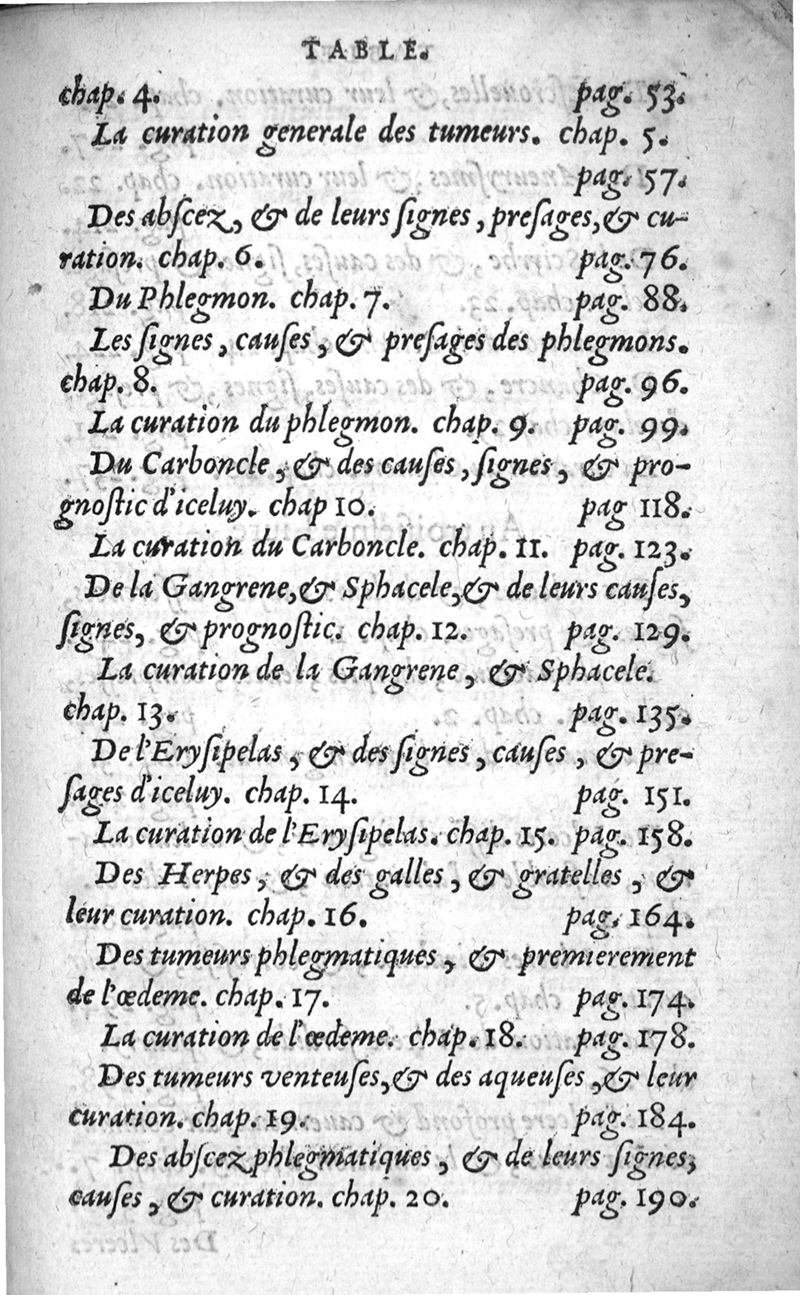 TABLE.
chap. 4. pag. 53.
La curation generale des tumeurs. chap. 5.
pag. 57.
Des abſcez, & de leurs ſignes, preſages, & cu-
ration. chap. 6. pag. 76.
Du Phlegmon. chap. 7. pag. 88.
Les ſignes, cauſes, & preſages des phlegmons.
chap. 8. pag. 96.
La curation du phlegmon. chap. 9. pag. 99.
Du Carboncle, & des cauſes, ſignes, & pro-
gnoſtic d'iceluy. chap 10. pag 118.
La curation du Carboncle. chap. 11. pag. 123.
De la Gangrene, & Sphacele, & de leurs cauſes,
ſignes, & prognoſtic. chap. 12. pag. 129.
La curation de la Gangrene, & Sphacele.
chap. 13. pag. 135.
De l'Eryſipelas, & des ſignes, cauſes, & pre-
ſages d'iceluy. chap. 14. pag. 151.
La curation de l'Eryſipelas. chap. 15. pag. 158.
Des Herpes, & des galles, & gratelles, &
leur curation. chap. 16. pag. 164.
Des tumeurs phlegmatiques, & premierement
de l'œdeme. chap. 17. pag. 174.
La curation de l'œdeme. chap. 18. pag. 178.
Des tumeurs venteuſes, & des aqueuſes, & leur
curation. chap. 19. pag. 184.
Des abſcez phlegmatiques, & de leurs ſignes,
cauſes, & curation. chap. 20. pag. 190.